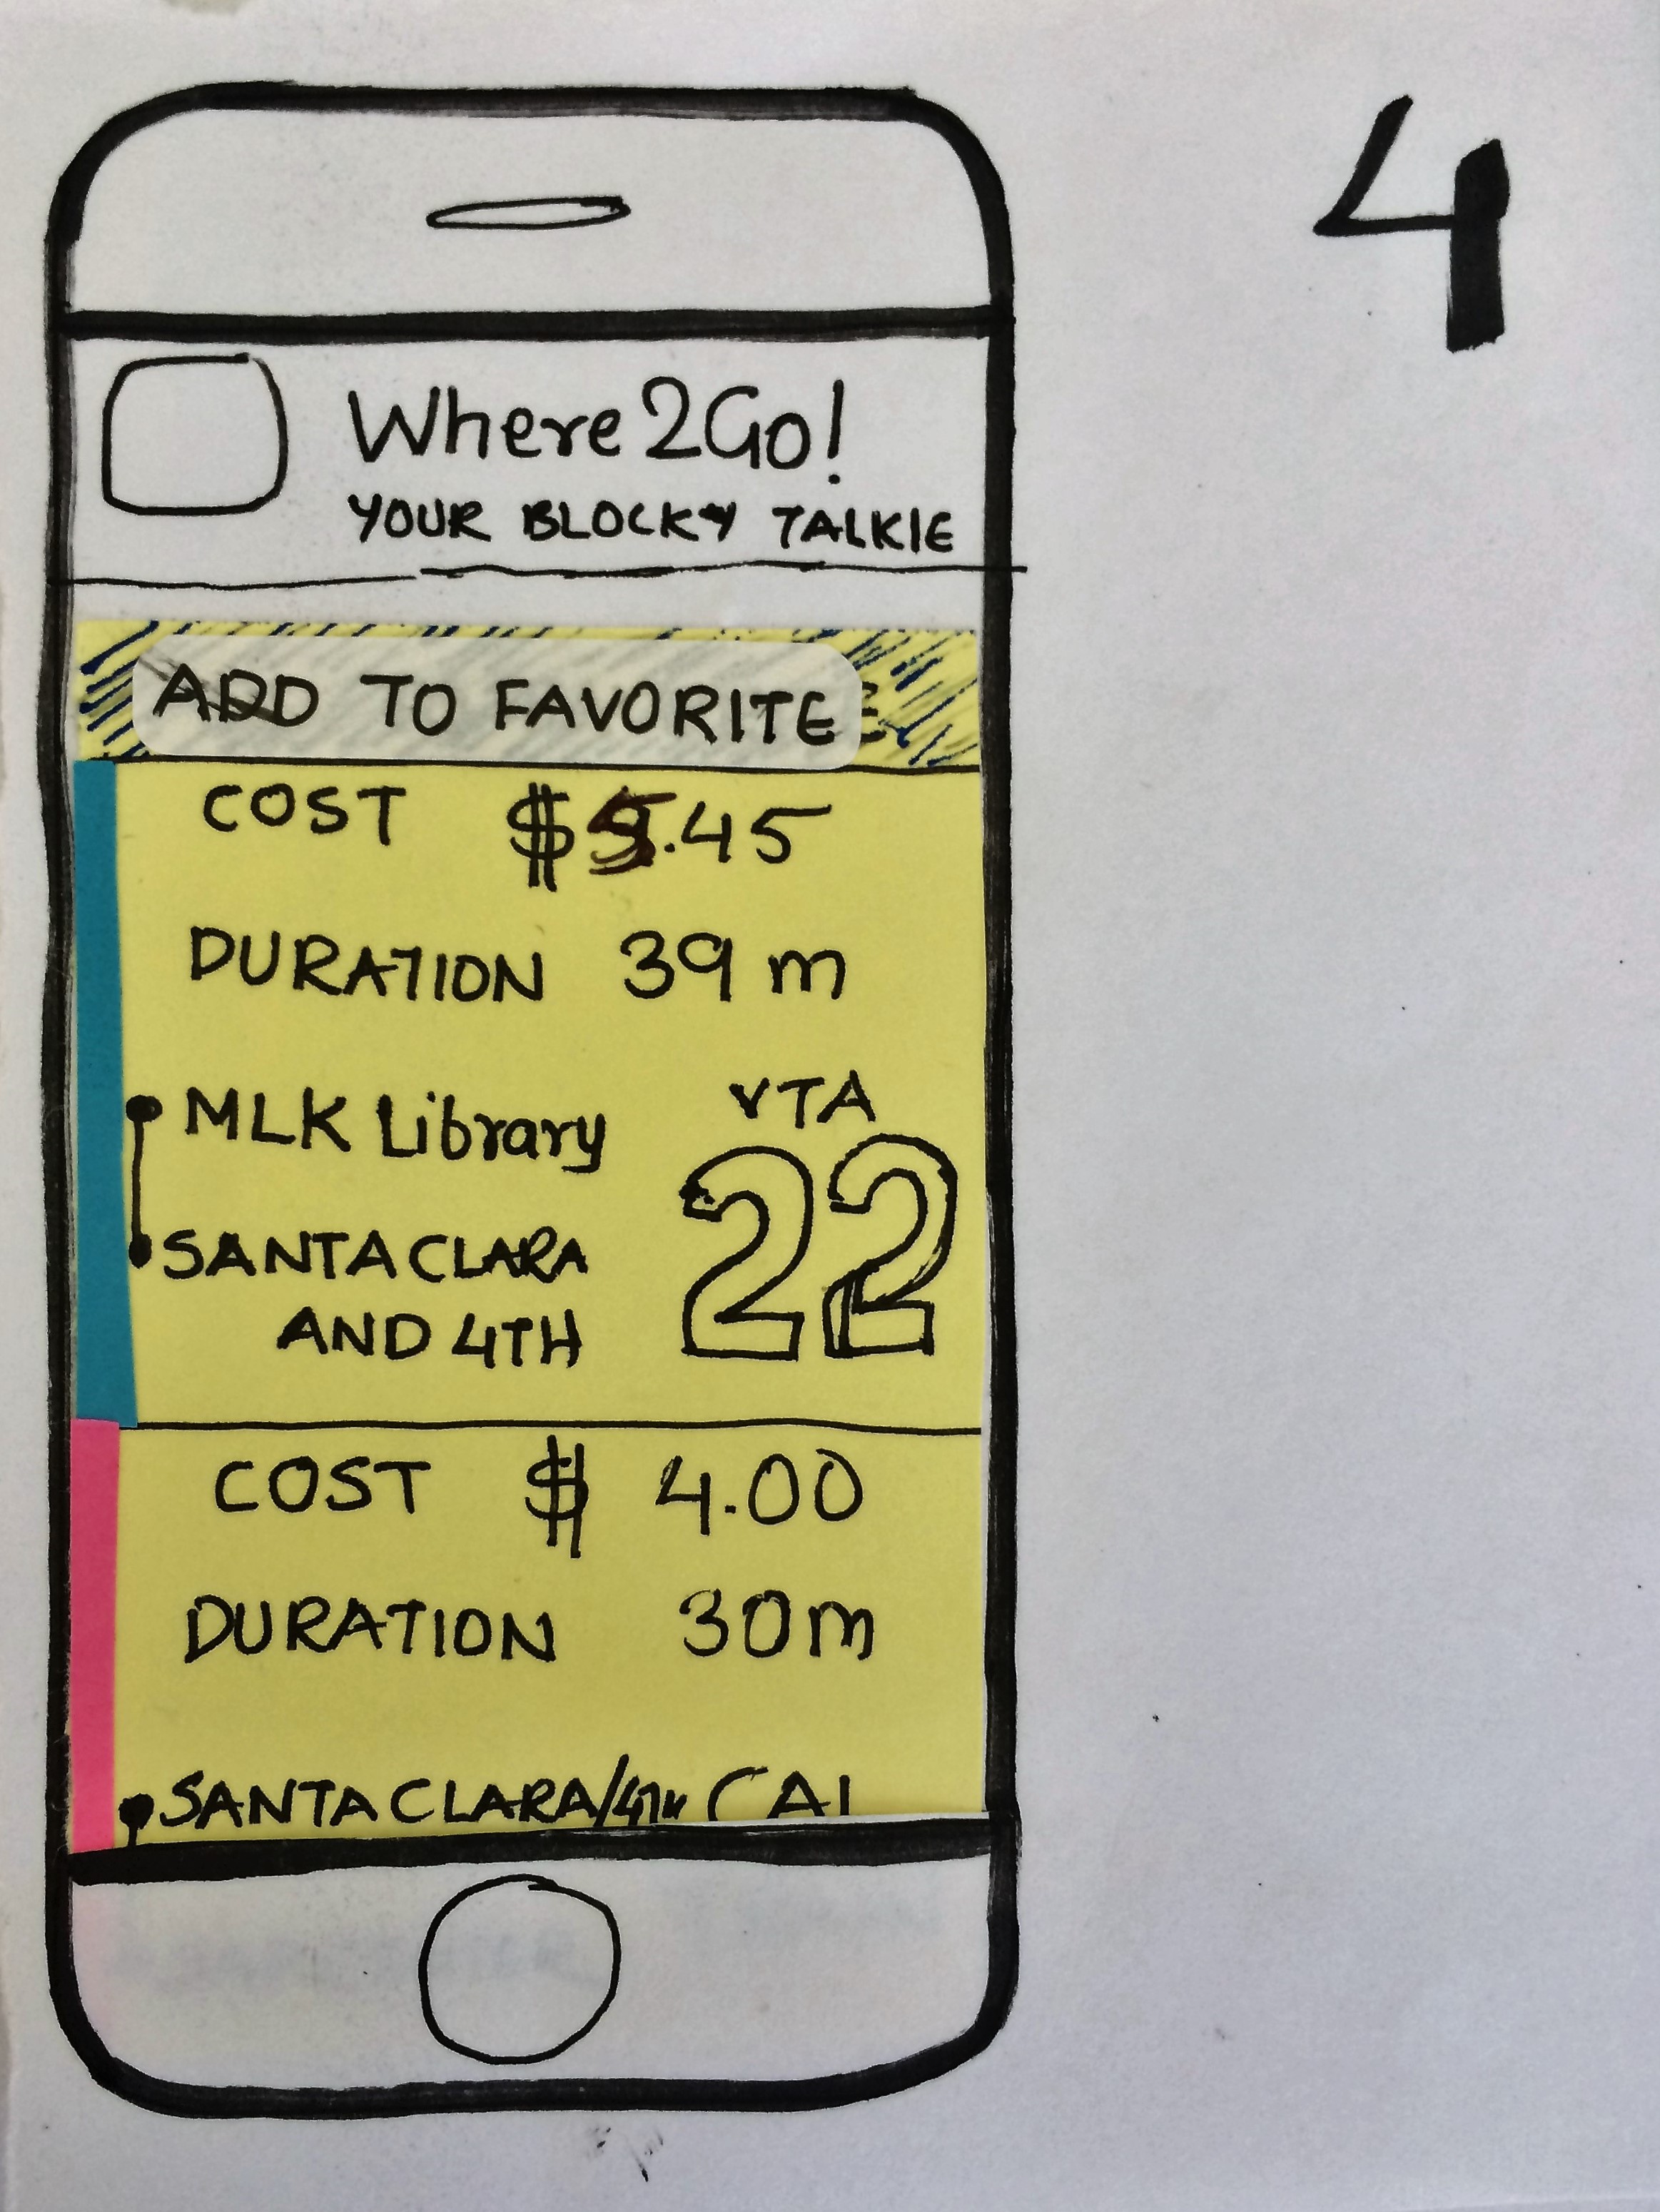 4
Where2Go!
YOUR BLOCKY TALKIE
ADD TO FAVORITE
COST $5.45
DURATION 39 m
MLK Library
VTA
22
SANTA CLARA
AND 4TH
COST $ 4.00
DURATION 30m
SANTA CLARA/4TH CAL